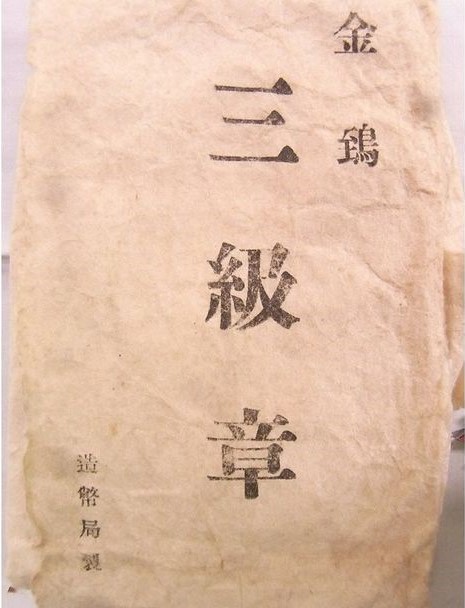 金鵄
三級章
造幣局製